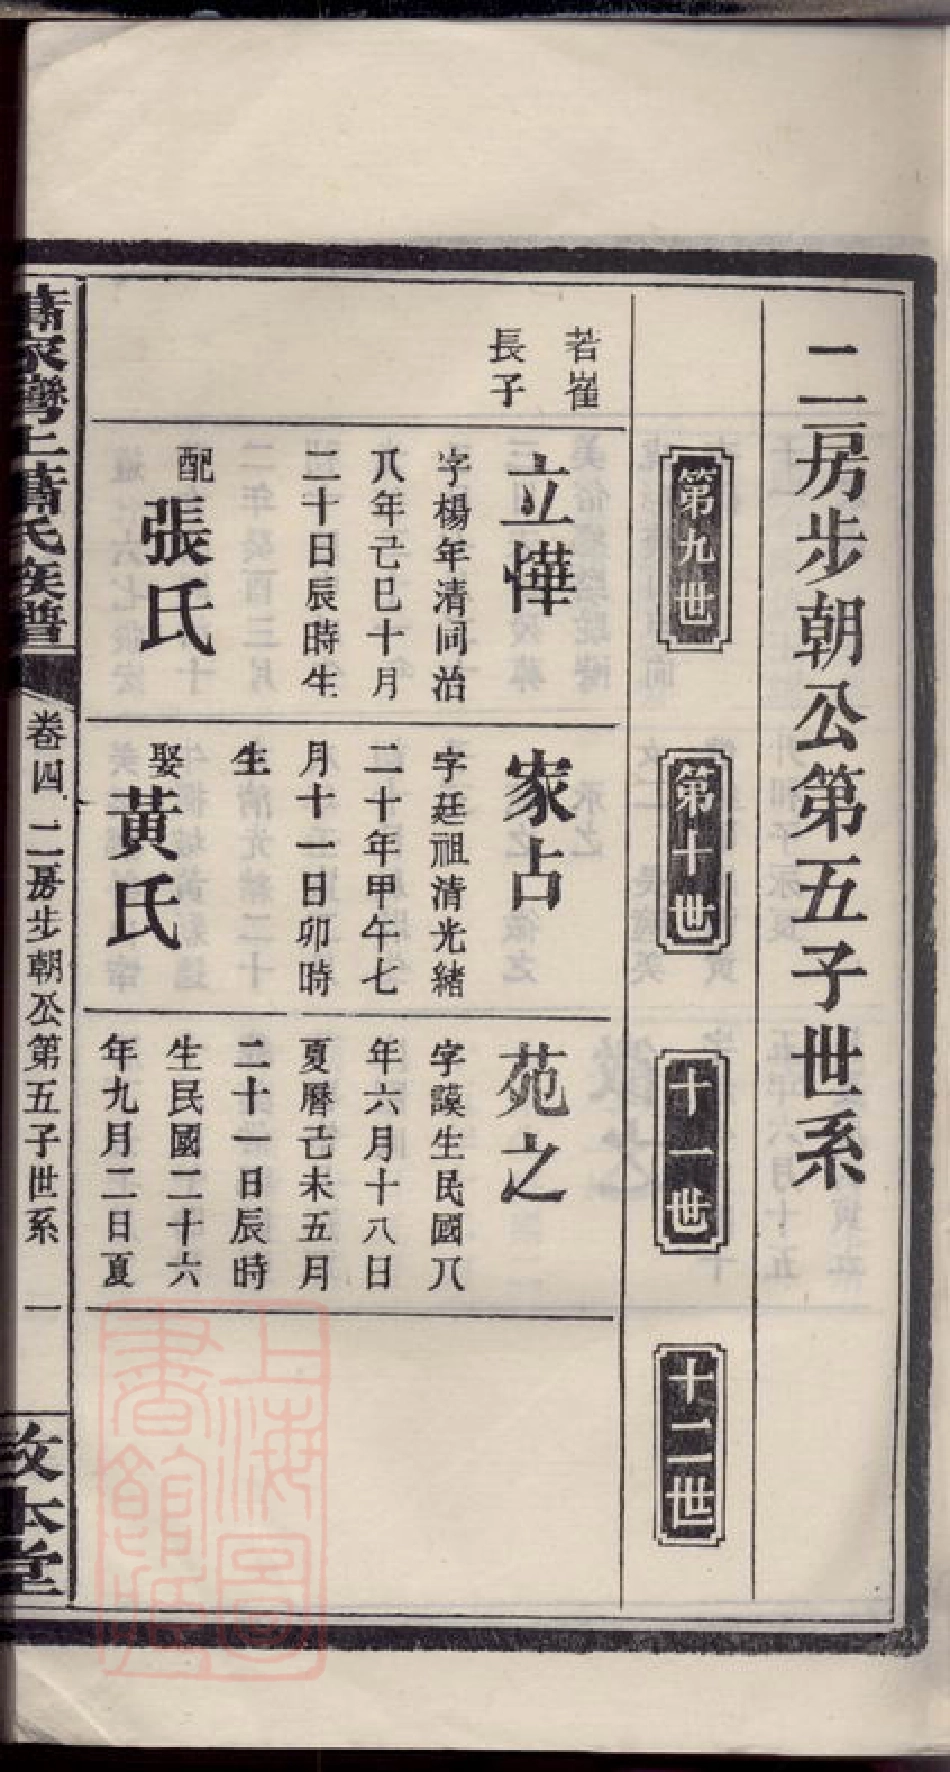 二房步朝公第五子世系
第九世
第十世
十一世
十二世
若崔
長子
立㦊
字楊年清同治
八年己巳十月
二十日辰時生
配
張氏
家占
字廷祖清光緒
二十年甲午七
月十一日卯時
生
娶
黃氏
苑之
字謨生民國八
年六月十八日
夏曆己未五月
二十一日辰時
生民國二十六
年九月二日夏
蕭家灣上蕭氏族普
卷四
二房步朝公第五子世系
一
敦本堂
上海圖
書館藏